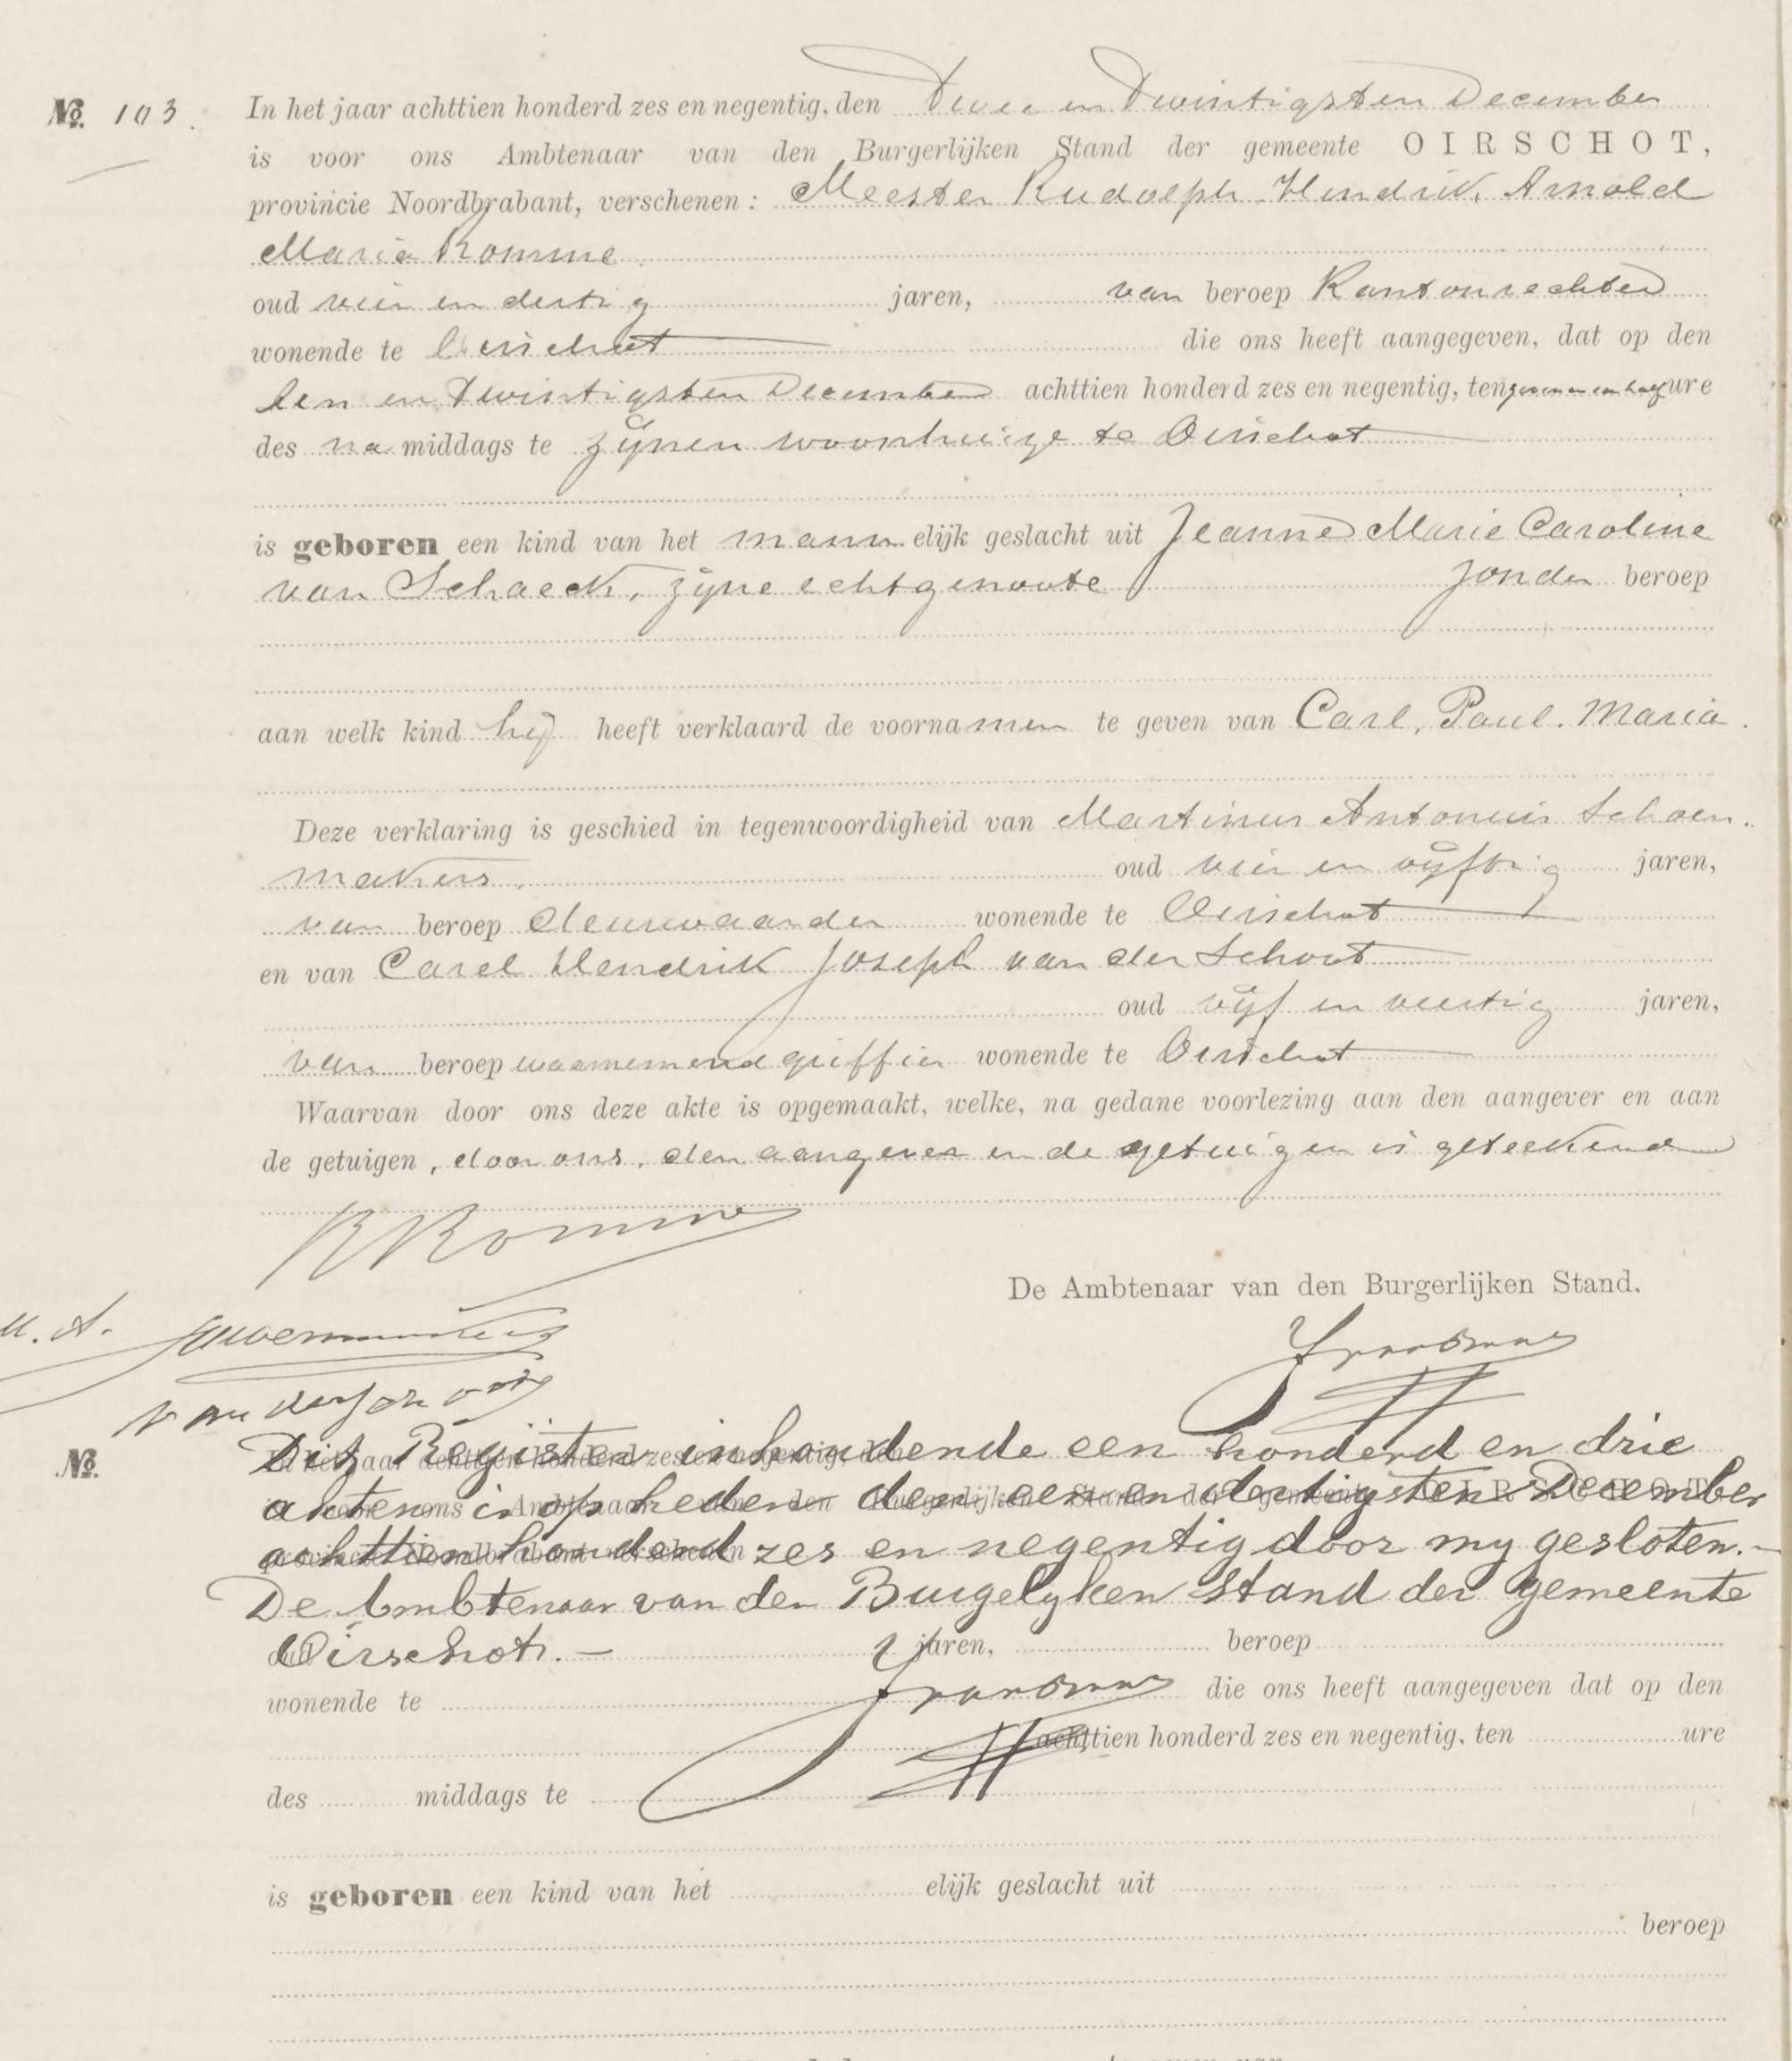 No. 103.
In het jaar achttien honderd zes en negentig, den Twee en Twintigsten December
is voor ons Ambtenaar van den Burgerlijken Stand der gemeente OIRSCHOT,
provincie Noordbrabant, verschenen: Meester Rudolph Hendrik Arnold
Maria Romme
oud vier en dertig jaren, van beroep Kantonrechter
wonende te Oirschot die ons heeft aangegeven, dat op den
Een en Twintigsten December achttien honderd zes en negentig, ten zeven en een half ure
des na middags te zijnen woonhuize te Oirschot
is geboren een kind van het mannelijk geslacht uit Jeanne Marie Caroline
van Schaeck, zijne echtgenoote zonder beroep
aan welk kind hij heeft verklaard de voornamen te geven van Carl, Paul. Maria.
Deze verklaring is geschied in tegenwoordigheid van Martinus Antonius Schoen-
makers, oud vier en vijftig jaren,
van beroep deurwaarder wonende te Oirschot
en van Carel Hendrik Joseph van der Schoot
oud vijf en veertig jaren,
van beroep waarnemend griffier wonende te Oirschot
Waarvan door ons deze akte is opgemaakt, welke, na gedane voorlezing aan den aangever en aan
de getuigen, door ons, den aangever en de getuigen is geteekend
RRomme
De Ambtenaar van den Burgerlijken Stand.
M. A.
van der Schoot
No.
Dit Register inhoudende een honderd en drie
akten is op heden den een en dertigsten December
achttien honderd zes en negentig door my gesloten.-
De Ambtenaar van den Burgelyken Stand der gemeente
Oirschot.-
jaren, beroep
wonende te die ons heeft aangegeven dat op den
achttien honderd zes en negentig, ten ure
des middags te
is geboren een kind van het elijk geslacht uit
beroep